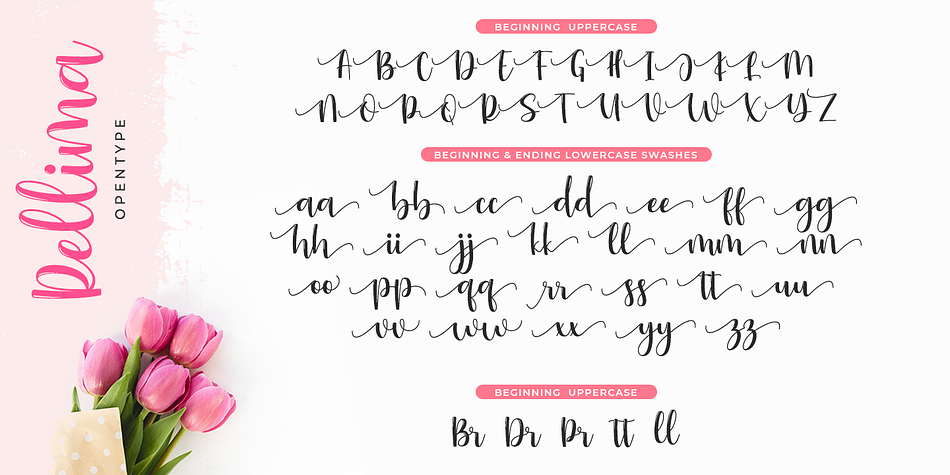 Pellima
OPENTYPE
BEGINNING UPPERCASE
A B C D E F G H I J K L M
N O P Q R S T U V W X Y Z
BEGINNING & ENDING LOWERCASE SWASHES
aa bb cc dd ee ff gg
hh ii jj kk ll mm nn
oo pp qq rr ss tt uu
vv ww xx yy zz
BEGINNING UPPERCASE
Br Dr Pr tt ll